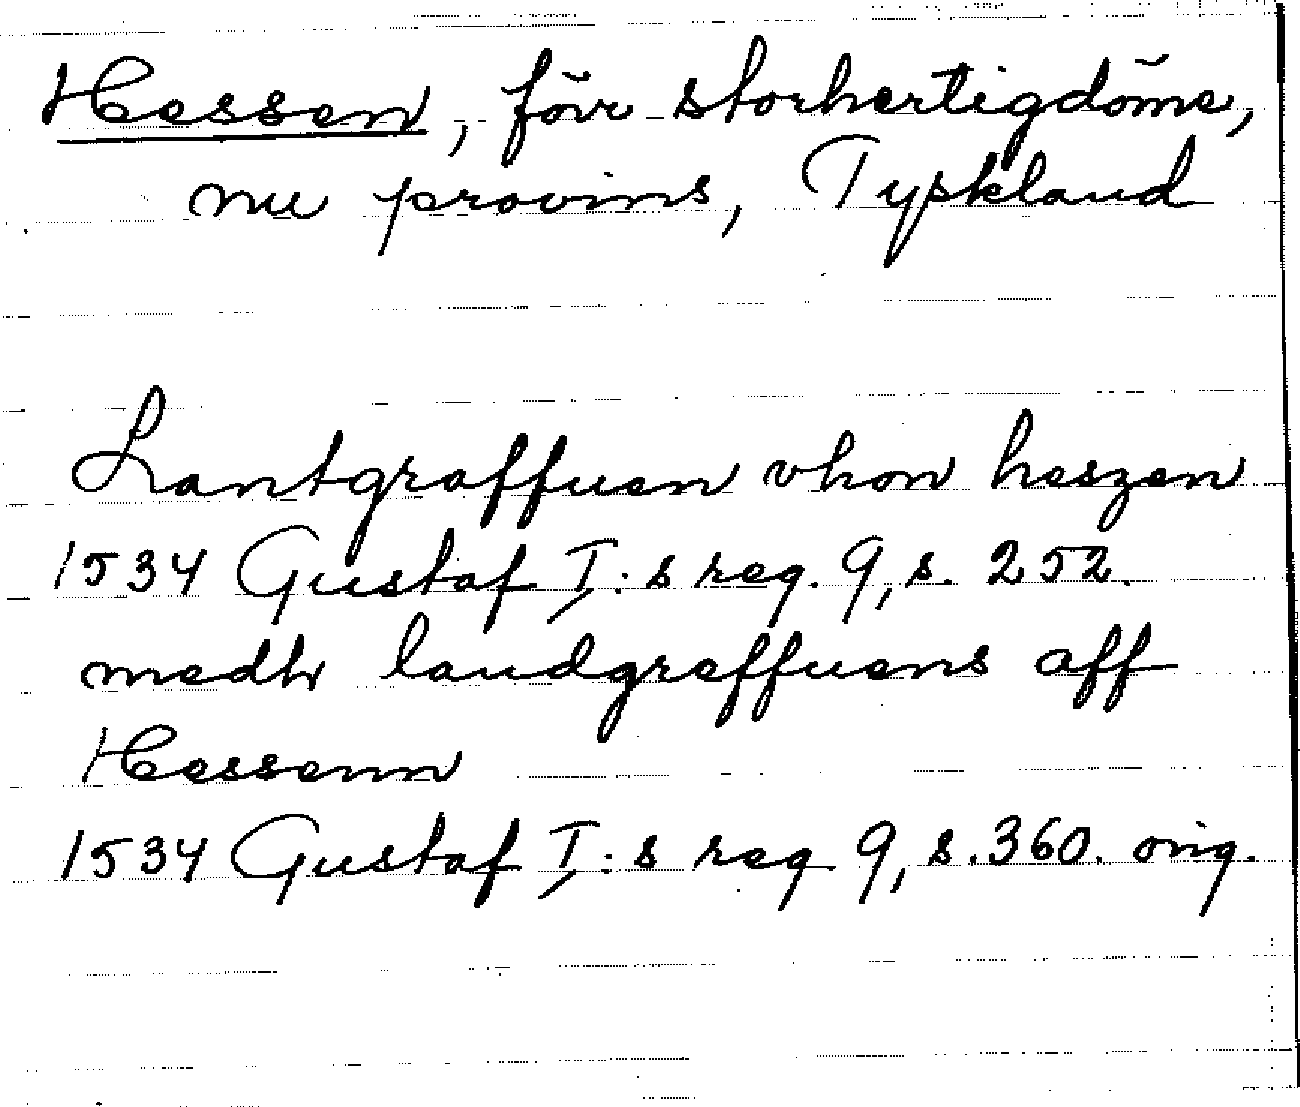 Hessen, förr storhertigdöme,
nu provins, Tyskland
Lantgraffuen vhon heszen
1534 Gustaf I:s reg. 9, s. 252.
medh landgreffuens aff
Hessenn
1534 Gustaf I:s reg 9, s. 360. orig.